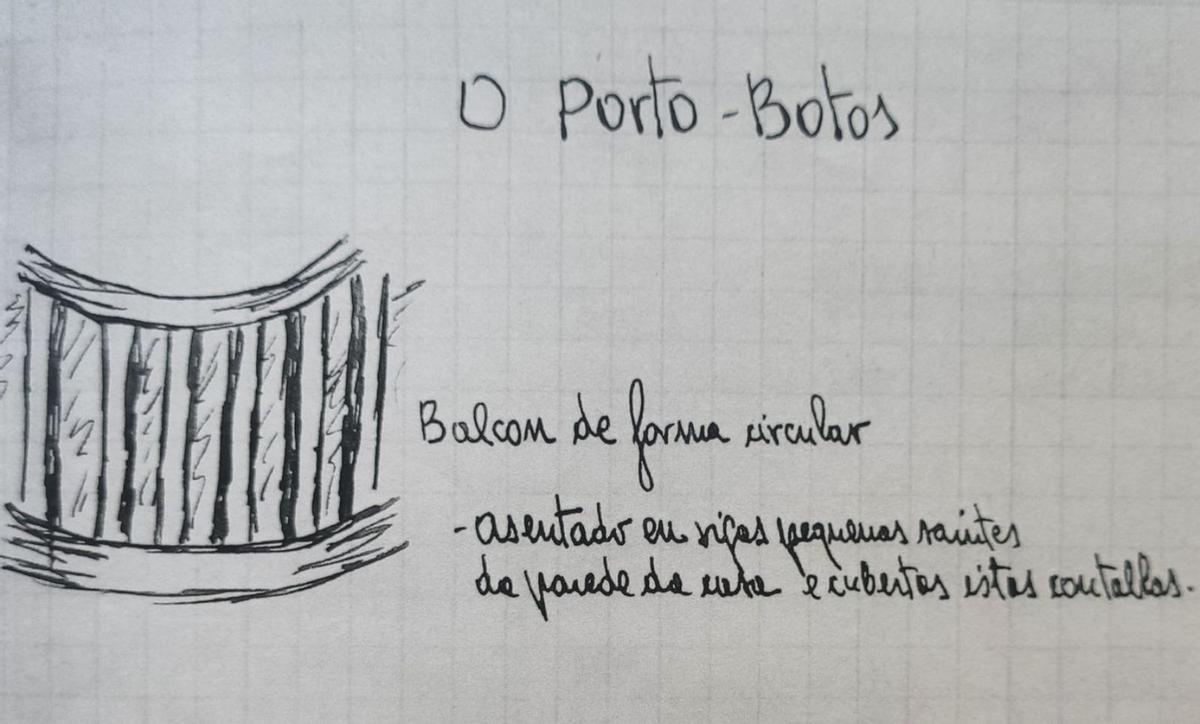 O Porto-Botos
Balcon de forma circular
- asentado en vigas pequenas saíntes
da parede da casa e cubertas éstas con tellas.